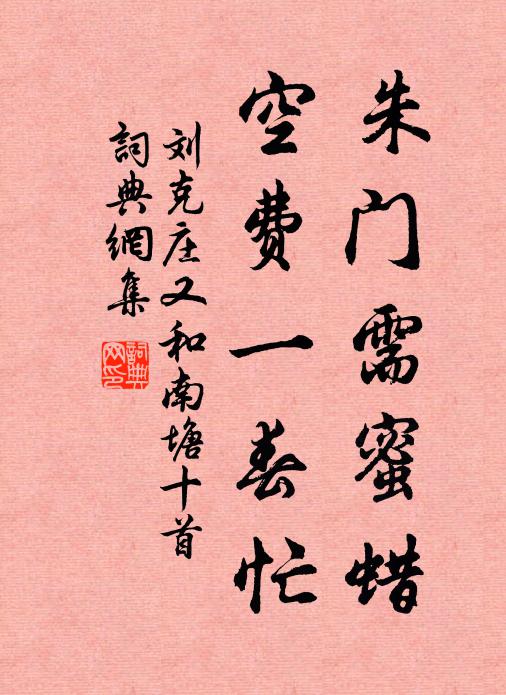 朱门需蜜蜡
空费一春忙
刘克庄又和南塘十首
詞典網集
詞典网印